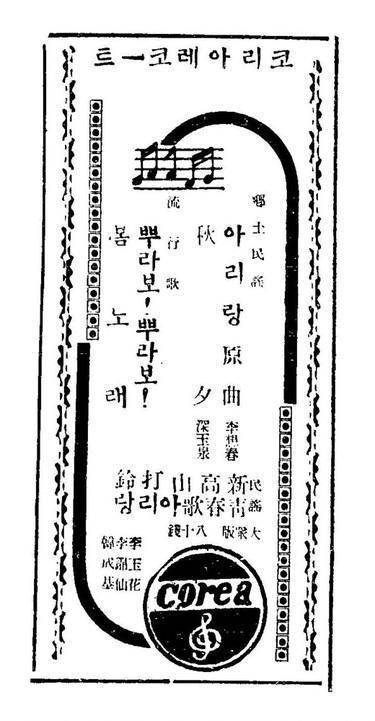 코리아레코ー트
鄕土民謠
아리랑原曲
秋夕
李想春
深玉泉
流行歌
뿌라보!뿌라보!
봄노래
民謠
新高山打鈴
靑春歌아리랑
大衆版 八十錢
李玉花
韓成基
corea